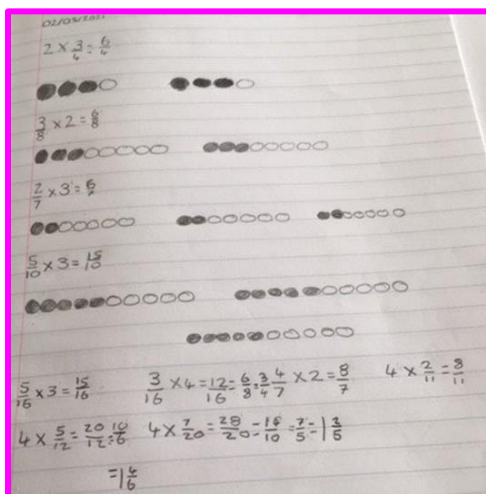 02/03/2021
2 × 3/4 = 6/4
3/8 × 2 = 6/8
2/7 × 3 = 6/7
5/10 × 3 = 15/10
5/16 × 3 = 15/16 3/16 × 4 = 12/16 = 6/8 = 3/4 4/7 × 2 = 8/7 4 × 2/11 = 8/11
4 × 5/12 = 20/12 = 10/6 4 × 7/20 = 28/20 = 14/10 = 7/5 = 1 2/5
= 1 4/6